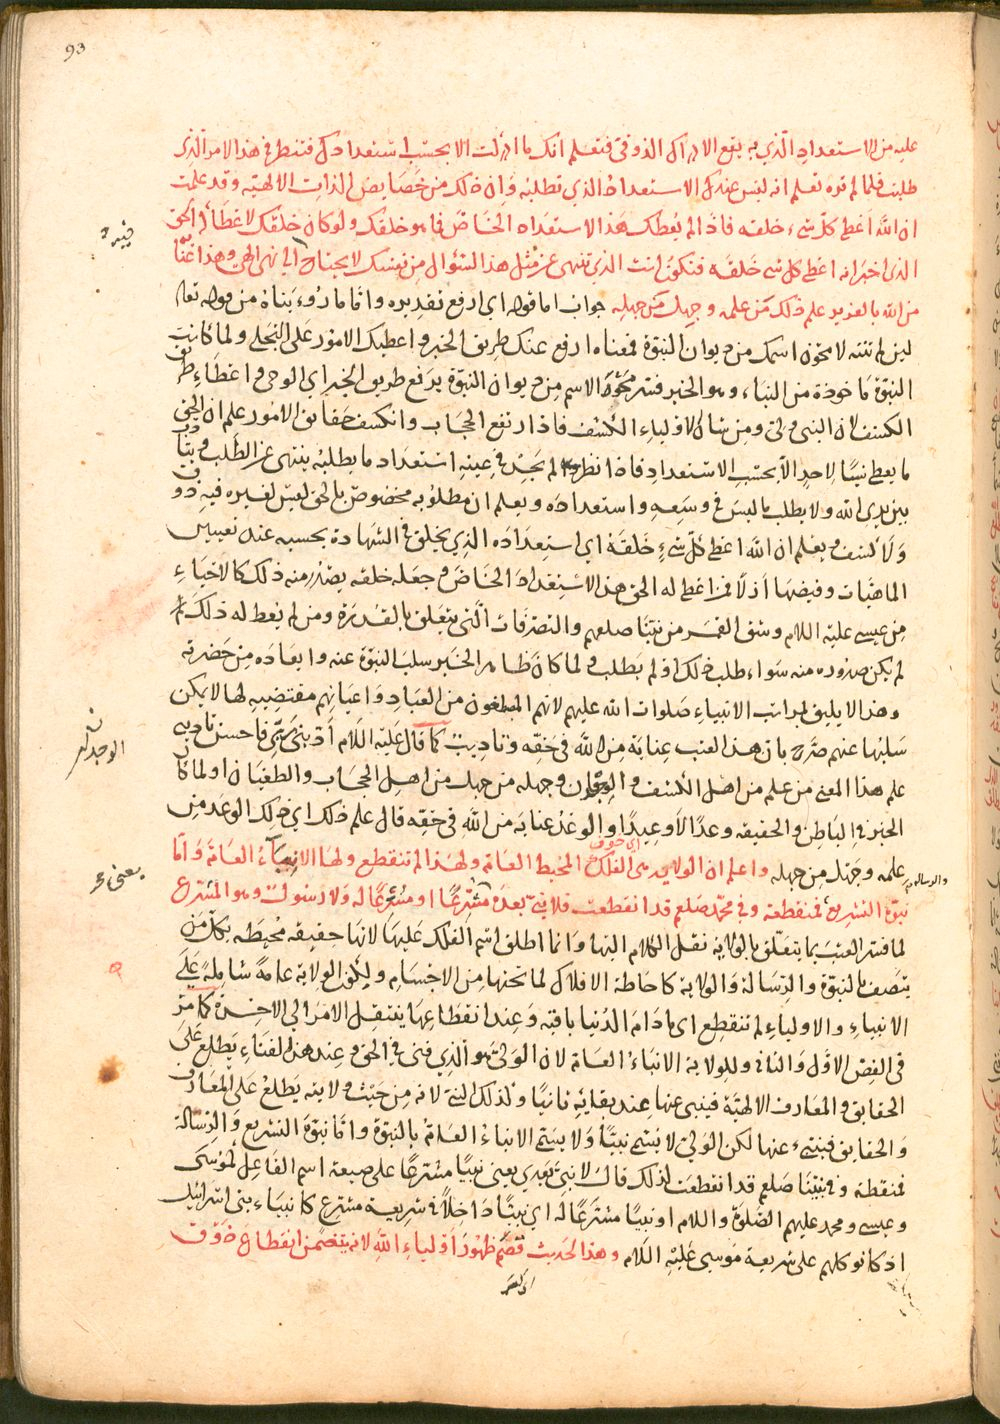 93
عليه من الاستعداد الذي به يقع الادراك الذوقي فتعلم انك ما ادركت الا بحسب استعدادك فتنظر في هذا الامر الذي
طلبت فلما لم تره تعلم انه ليس عندك الاستعداد الذي تطلبه وان ذلك من خصايص الذات الالهيه وقد علمت
ان الله اعطى كل شيء خلقه فاذا لم يعطك هذا الاستعداد الخاص فما هو خلقك ولو كان خلقك لاعطاه الحق
الذي اخبر انه اعطى كل شي خلقه فتكون انت الذي تنتهى عن مثل هذا السؤال من نفسك لا يحتاج الى نهى الهي وهذا عناية
من الله بالعزير علم ذلك من علمه وجهل من جهله جواب اما قوله اي ارفع تقديره واما ما رويناه من قوله تعالى
لين لم تنته لامحون اسمك من ديوان النبوة فمعناه ارفع عنك طريق الخبر واعطيك الامور على التجلي ولما كانت
النبوة ماخوذة من النباء وهو الخبر فسر محو الاسم من ديوان النبوة برفع طريق الخبر اي الوحي واعطاء طريق
الكشف لان النبي ولى ومن شان الاولياء الكشف فاذا ارتفع الحجاب وانكشف حقايق الامور علم ان الحق
ما يعطي شيئا لاحد الا بحسب الاستعداد فاذا نظر ولم يجد في عينه استعداد ما يطلبه ينتهى عن الطلب
بين يدي الله ولا يطلب ما ليس في وسعه واستعداده ويعلم ان مطلوبه مخصوص بالحق ليس لغيره فيه ذوق
ولا كشف ويعلم ان الله اعطى كل شيء خلقه اي استعداده الذي يخلق في الشهادة بحسبه عند تعيين
الماهيات وفيضها اذلا فمن اعطى له الحق هذا الاستعداد الخاص وجعله خلقه يصدر منه ذلك كالاحياء
من عيسى عليه اللام وشق القمر من نبينا صلعم والتصرفات التي يتعلق بالقدرة ومن لم يعط له ذلك
لم يكن صدوره منه سواء طلب ذلك او لم يطلب ولما كان ظاهر الخبر سلب النبوة عنه وابعاده من حضرته
وهذا لا يليق لمراتب الانبياء صلوات الله عليهم لانهم المصطفون من العباد واعيانهم مقتضيه لها لا يمكن
سلبها عنهم صرح بان هذا العتب عناية من الله في حقه وتاديب كما قال عليه اللام أدبني ربي فاحسن تاديبي
علم هذا المعنى من علم من اهل الكشف و وجهله من جهل من اهل الحجاب والطغيان او لما كان
الخبر في الباطن والحقيقه وعدا لا وعيدا والوعد عناية من الله في حقه قال علم ذلك اي ذلك الوعد من
علمه وجهل من جهله واعلم ان الولاية هى الفلك المحيط العام ولهذا لم تنقطع ولها الانباء العام واما
نبوة التشريع والرسالة فمنقطعة وفي محمد صلعم قد انقطعت فلا نبي بعده مشرعا او مشرعا له ولا رسول وهو المشرع
لما فسر العتب بما يتعلق بالولاية نقل الكلام اليها وانما اطلق اسم الفلك عليها لانها حقيقه محيطه بكل من
يتصف بالنبوة والرسالة والولاية كاحاطة الافلاك لما تحتها من الاجسام ولكون الولاية عامة شاملة على
الانبياء والاولياء لم تنقطع اي ما دام الدنيا باقيه وعند انقطاعها ينتقل الامر الى الاخرة كما مر
في الفص الاول والثاني وللولاية الانباء العام لان الولي هو الذي فنى في الحق وعند هذا الفناء يطلع على
الحقايق والمعارف الالهية فينبي عنها عند بقايه ثانيا وكذلك النبي لانه من حيث ولايته يطلع على المعارف
والحقايق فينبيء عنها لكن الولي لا يسمى نبيا ولا يسمى الانباء العام بالنبوة واما نبوة التشريع والرسالة
فمنقطة وفي نبينا صلعم قد انقطعت لذلك قال لا نبي بعدي يعني نبيا مشرعا على صيغة اسم الفاعل كموسى
وعيسى ومحمد عليهم الصلوة واللام او نبيا مشرعا له اي نبيا داخلا في شريعة مشرع كانبياء بني اسرائيل
اذ كانوا كلهم على شريعة موسى عليه اللام وهذا الحديث قصم ظهور اولياء الله لانه يتضمن انقطاع ذوق
الوجدان
يعني